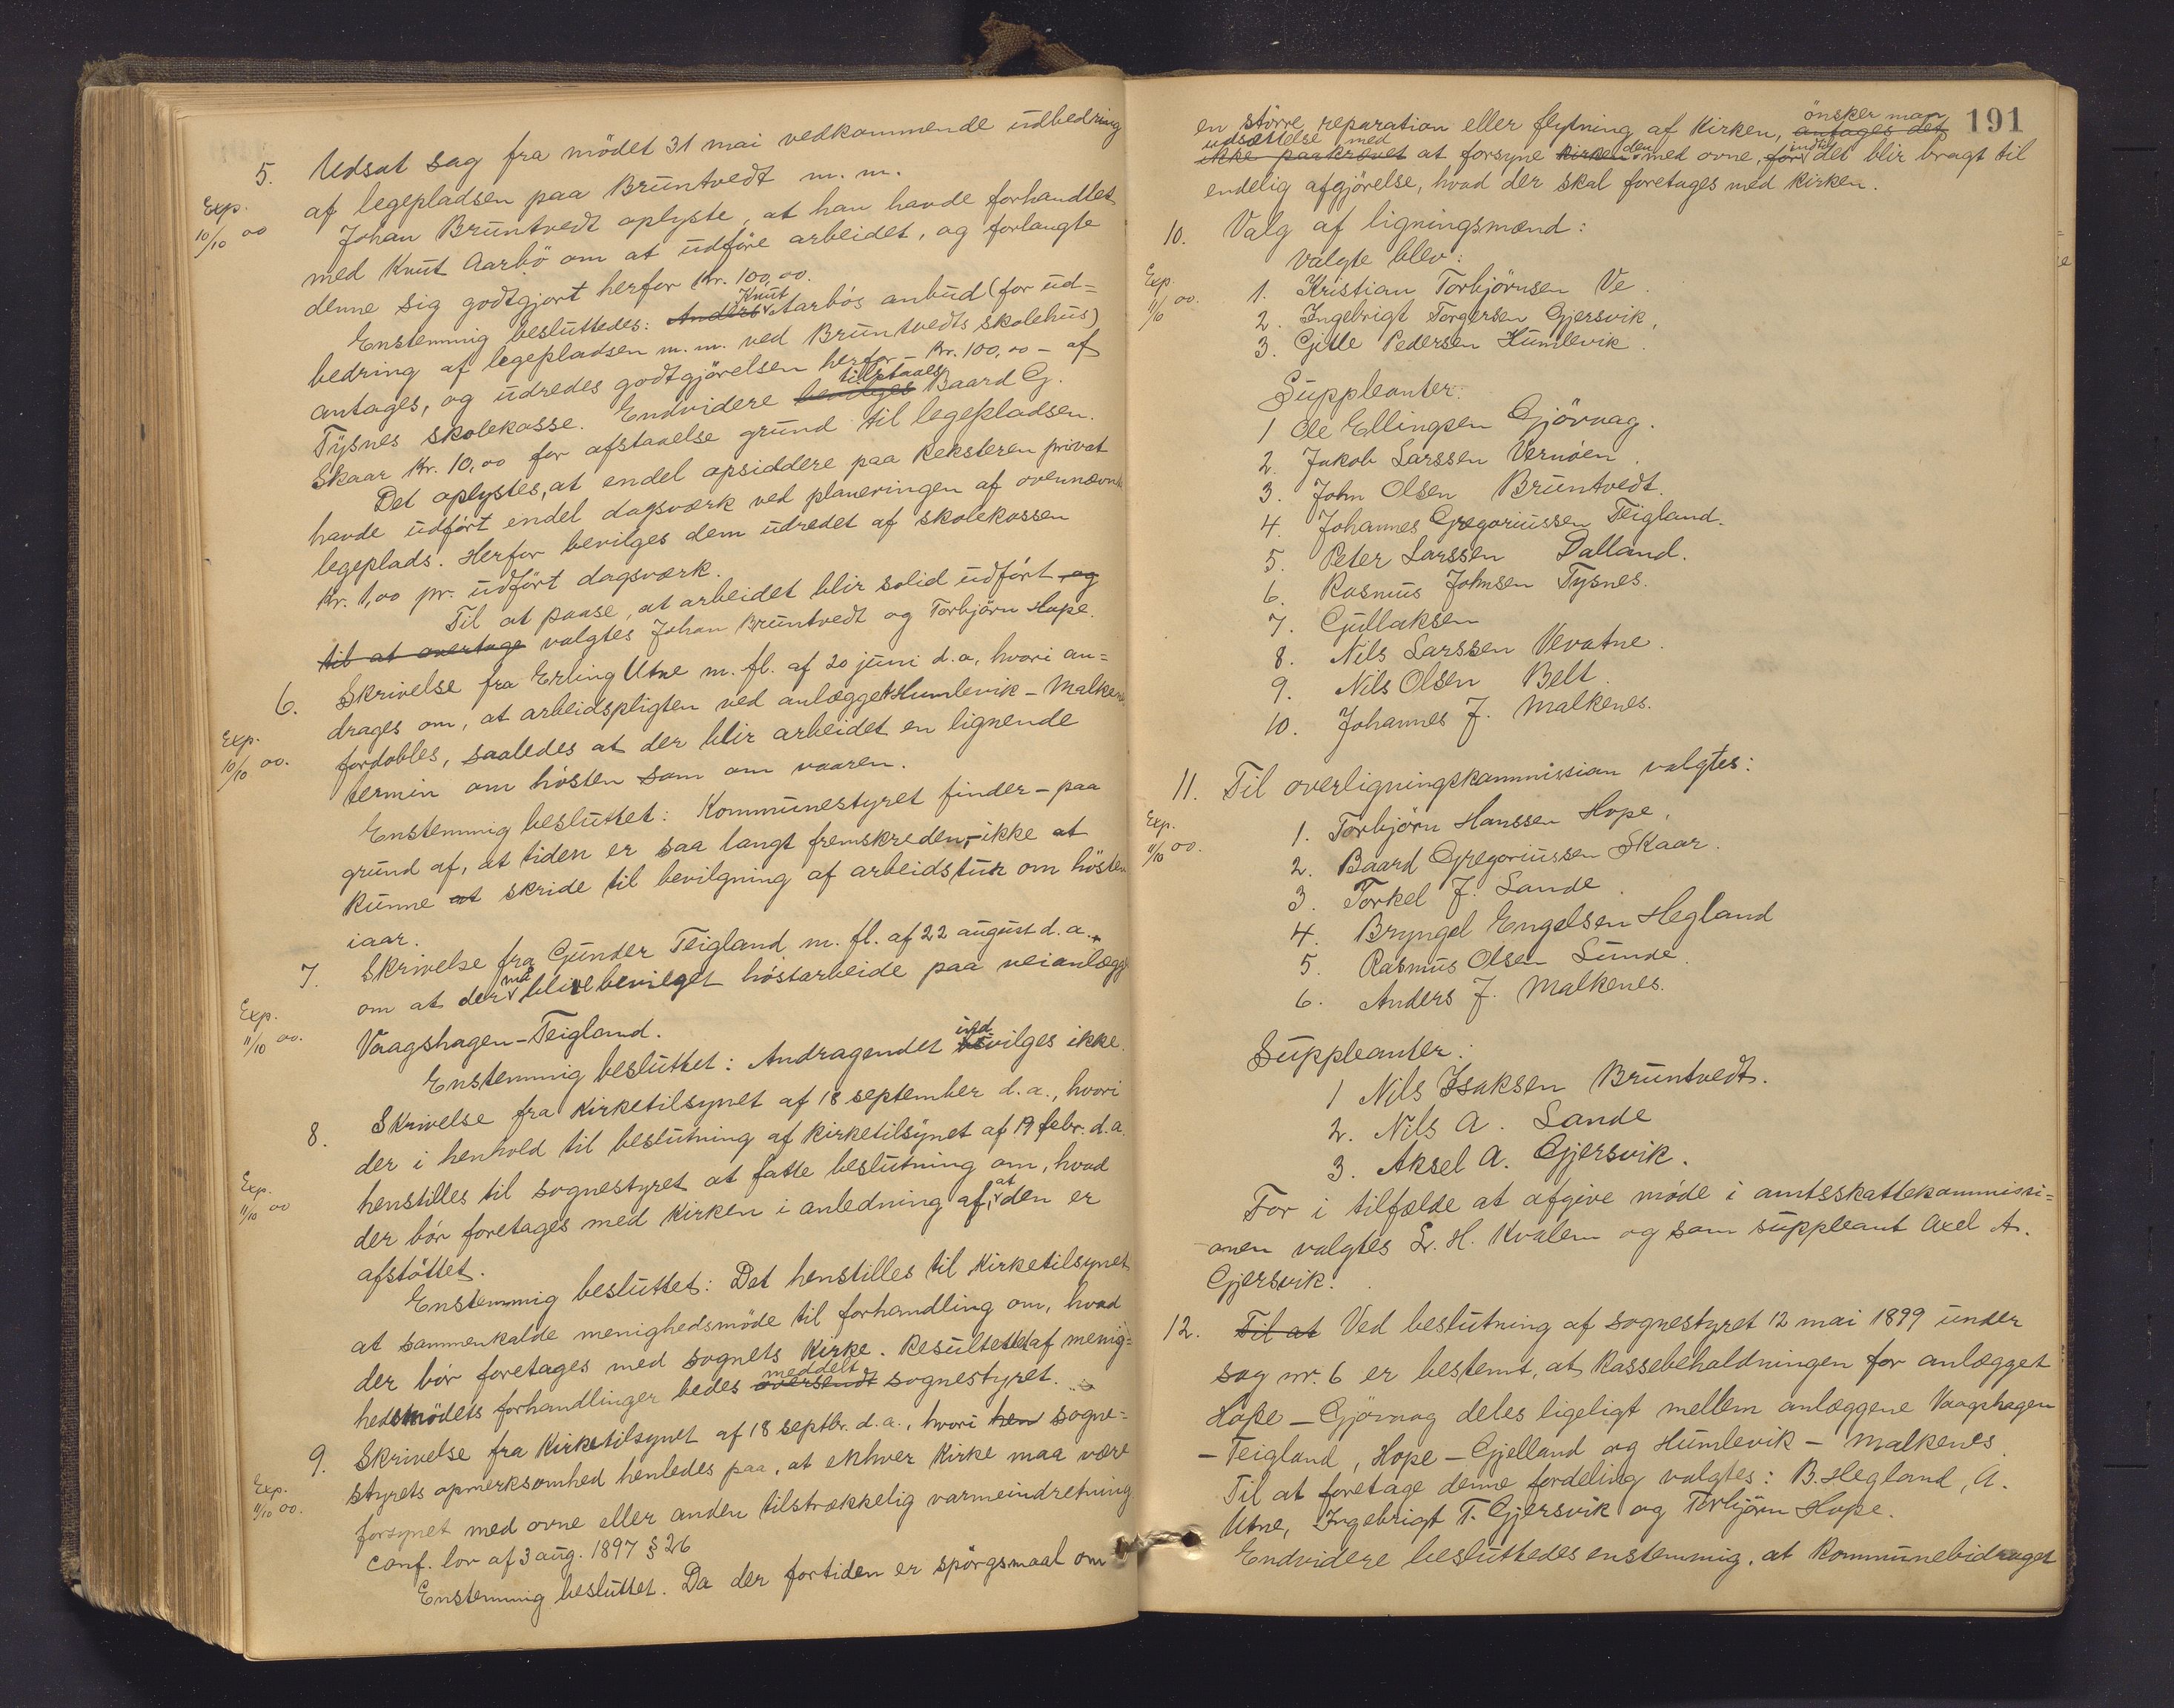 5. Udsat sag fra mödet 31 mai vedkommende udbedring
af legepladsen paa Bruntvedt m. m.
Exp. 10/10 00
Johan Bruntvedt oplyste, at han havde forhandlet
med Knut Aarbö om at udföre arbeidet, og forlangte
denne sig godtgjort herfor Kr. 100,00.
Enstemmig besluttedes: Anders Knut Aarbös anbud (for ud=
bedring af legepladsen m. m. ved Bruntvedts skolehus)
antages, og udredes godtgjörelsen herfor – Kr. 100,00 – af
Tysnes skolekasse. Endvidere bevilges tilstaaes Baard G.
Skaar Kr. 10,00 for afstaaelse grund til legepladsen.
Det oplystes, at endel opsiddere paa Reksteren privat
havde udfört endel dagsværk ved planeringen af ovennævnte
legeplads. Herfor bevilges dem udredet af skolekassen
Kr. 1,00 pr. udfört dagsværk.
Til at paase, at arbeidet blir solid udfört og
til at overtage valgtes Johan Bruntvedt og Torbjörn Hope.
6. Skrivelse fra Erling Utne m. fl. af 20 juni d. a, hvori an=
drages om, at arbeidspligten ved anlægget Humlevik – Malkenes
Exp. 10/10 00.
fordobles, saaledes at der blir arbeidet en lignende
termin om hösten som om vaaren.
Enstemmig besluttet: Kommunestyret finder – paa
grund af, at tiden er saa langt fremskreden, – ikke at
kunne at skride til bevilgning af arbeidstur om hösten
iaar.
7. Skrivelse fra Gunder Teigland m. fl. af 22 august d. a.
om at der maa blive bevilget höstarbeide paa veianlægget
Exp. 11/10 00.
Vaagshagen – Teigland.
Enstemmig besluttet: Andragendet bevilges ind ikke.
8. Skrivelse fra Kirketilsynet af 18 september d. a., hvori
der i henhold til beslutning af kirketilsynet af 19 febr. d. a.
Exp. 11/10 00
henstilles til sognestyret at fatte beslutning om, hvad
der bör foretages med Kirken i anledning af, at den er
afstöttet.
Enstemmig besluttet: Det henstilles til Kirketilsynet
at sammenkalde menighedsmöde til forhandling om, hvad
der bör foretages med sognets Kirke. Resultatet af menig=
hedsmödets forhandlinger bedes oversendt meddelt sognestyret.
9. Skrivelse fra Kirketilsynet af 18 septbr. d. a., hvori hen sogne=
styrets opmerksomhed henledes paa, at enhver Kirke maa være
Exp. 11/10 00.
forsynet med ovne eller anden tilstrækkelig varmeindretning
conf. lov af 3 aug. 1897 § 26
Enstemmig besluttet. Da der fortiden er spörgsmaal om
191
en större reparation eller flytning af Kirken, antages det önsker man
ikke paakrævet udsættelse med at forsyne Kirken den med ovne, för indtil det blir bragt til
endelig afgjörelse, hvad der skal foretages med Kirken.
10. Valg af ligningsmænd:
Valgte blev:
Exp. 11/10 00.
1. Kristian Torbjörnsen Ve.
2. Ingebrigt Torgersen Gjersvik,
3. Gitle Pedersen Humlevik.
Suppleanter:
1 Ole Ellingsen Gjövaag.
2. Jakob Larssen Vernöen.
3. John Olsen Bruntvedt.
4. Johannes Gregoriussen Teigland.
5. Peter Larssen Dalland.
6. Rasmus Johnsen Tysnes.
7. Gullaksen
8. Nils Larssen Vevatne.
9. Nils Olsen Belt.
10. Johannes J. Malkenes.
11. Til overligningskommission valgtes:
Exp. 11/10 00.
1. Torbjörn Hanssen Hope.
2. Baard Gregoriussen Skaar.
3. Torkel J. Lande.
4. Bryngel Engelsen Hegland
5. Rasmus Olsen Sunde.
6. Anders J. Malkenes.
Suppleanter:
1 Nils Isaksen Bruntvedt.
2. Nils A. Lande
3. Aksel A. Gjersvik.
For i tilfælde at afgive möde i amtsskattekommissi=
onen valgtes L. H. Kvalem og som suppleant Axel A.
Gjersvik.
12. Til at Ved beslutning af sognestyret 12 mai 1899 under
sag nr. 6 er bestemt, at kassebeholdningen for anlægget
Hope – Gjövaag deles ligeligt mellem anlæggene Vaagshagen
– Teigland, Hope – Gjelland og Humlevik – Malkenes.
Til at foretage denne fordeling valgtes: B. Hegland, A.
Utne, Ingebrigt T. Gjersvik og Torbjörn Hope.
Endvidere besluttedes enstemmig, at kommunebidraget